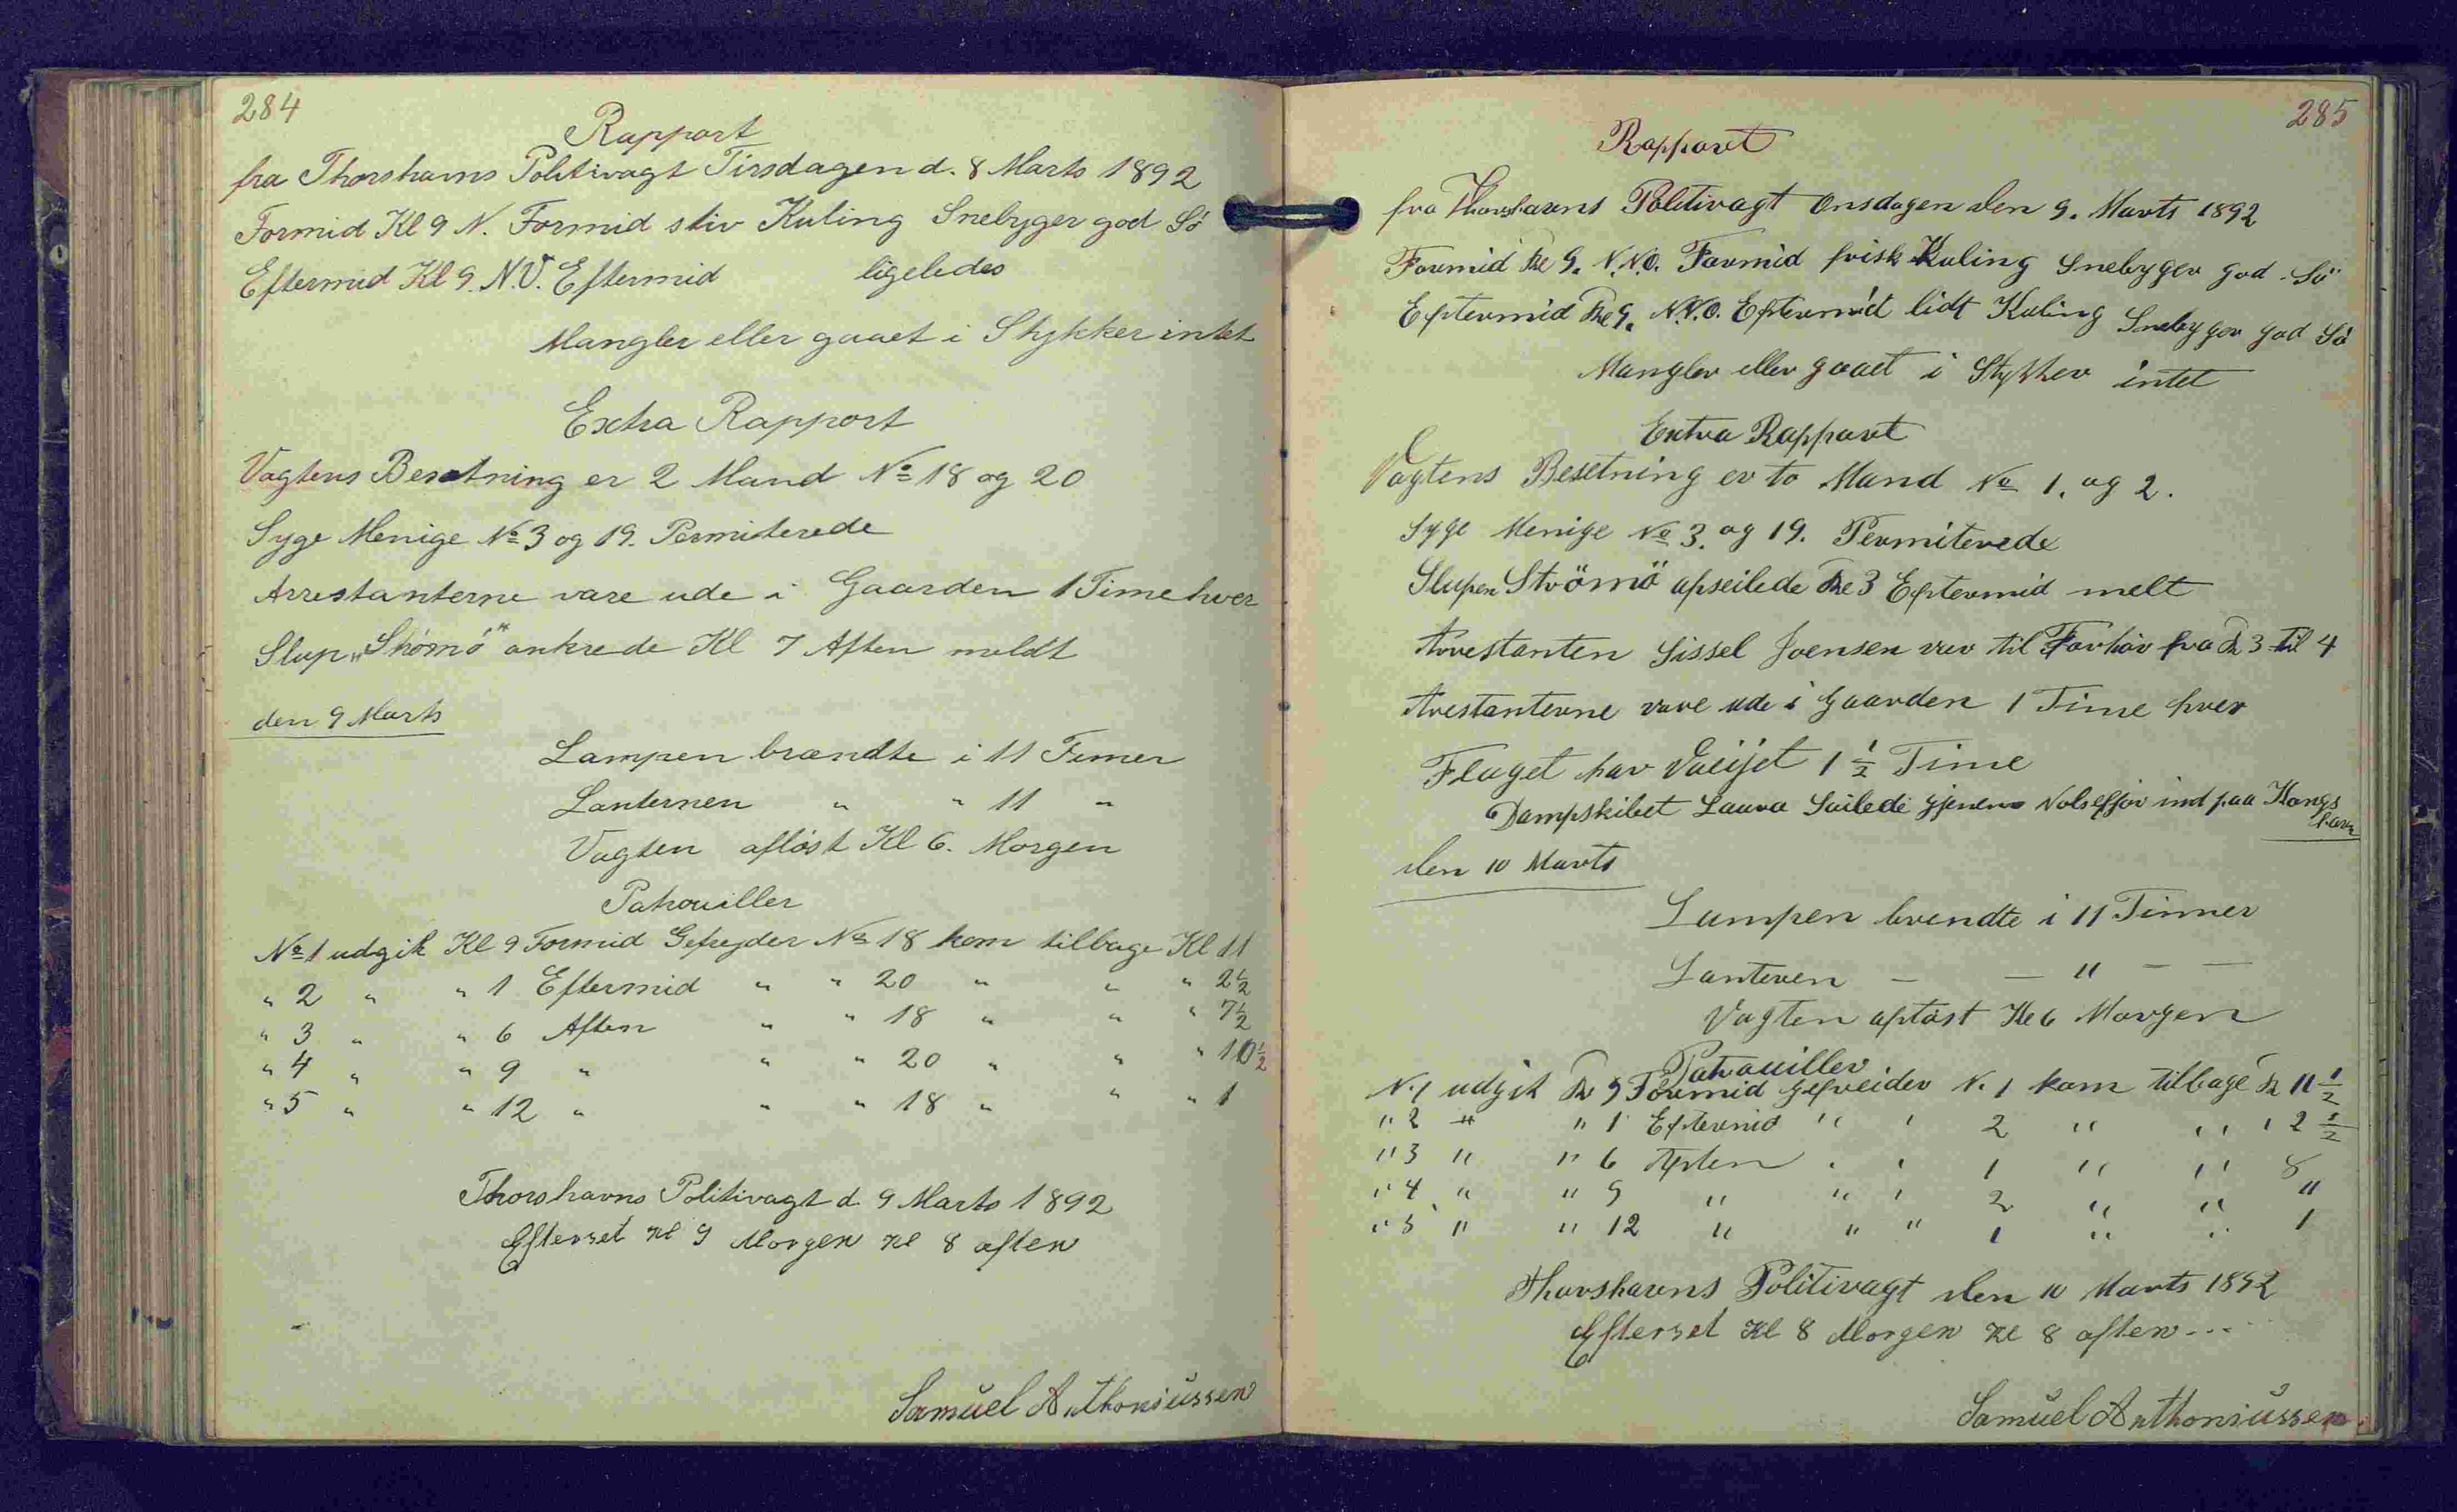 284
Rapport
fra Thorshavns Politivagt Tirsdagen d. 8 Marts 1892
Formid Kl 9 N. Formid stiv Kuling Snebyger god Sö
Eftermid Kl 9. N.V. Eftermid ligeledes
Mangler eller gaaet i Stykker intet
Extra Rapport
Vagtens Besetning er 2 Mand No 18 og 20
Syge Menige No 3 og 19. Permiterede
Arrestanterne vare ude i Gaarden 1 Time hver
Slup „Strömö" ankrede Kl 7 Aften meldt
den 9 Marts
Lampen brændte i 11 Timer
Lanternen " " 11 "
Vagten aflöst Kl 6. Morgen
Patrouiller
No 1 udgik Kl 9 Formid Gefrejder No 18 kom tilbage Kl 11
" 2 " " 1 Eftermid " " 20 " " " 2 1/2
" 3 " " 6 Aften " " 18 " " " 7 1/2
" 4 " " 9 " " " 20 " " " 10 1/2
" 5 " " 12 " " " 18 " " " 1
Thorshavns Politivagt d. 9 Marts 1892
Efterset Kl 9 Morgen Kl 8 aften
Samuel Anthoniussen
285
Rapport
fra Thorshavns Politivagt Onsdagen den 9. Marts 1892
Formid Kl 9. N.N.O. Formid frisk Kuling Snebyger god Sö
Eftermid Kl 9. N.N.O. Eftermid lidt Kuling Snebyger god Sö
Mangler eller gaaet i Stykker intet
Extra Rapport
Vagtens Besetning er to Mand No 1. og 2.
Syge Menige No 3. og 19. Permiterede
Slupen Strömö afseilede Kl 3 Eftermid melt
Arrestanten Sissel Joensen var til Forhör fra Kl 3 til 4
Arestanterne vare ude i Gaarden 1 Time hver
Flaget har Vaeijet 1 1/2 Time
Dampskibet Laura Seilede gjenem Nolsefjor ind paa Kongs
havn
den 10 Marts
Lampen brendte i 11 Timer
Lanteren — — " — —
Vagten aflöst Kl 6 Morgen
Patrouiller
N. 1 udgik Kl 9 Formid Gefreider N. 1 kom tilbage Kl 11 1/2
" 2 " " 1 Eftermid " " 2 " " " 2 1/2
" 3 " " 6 Aften " " 1 " " 8
" 4 " " 9 " " " 2 " " 11
" 5 " " 12 " " " 1 " " 1
Thorshavns Politivagt den 10 Marts 1892
Efterset Kl 8 Morgen Kl 8 aften ...
Samuel Anthoniussen